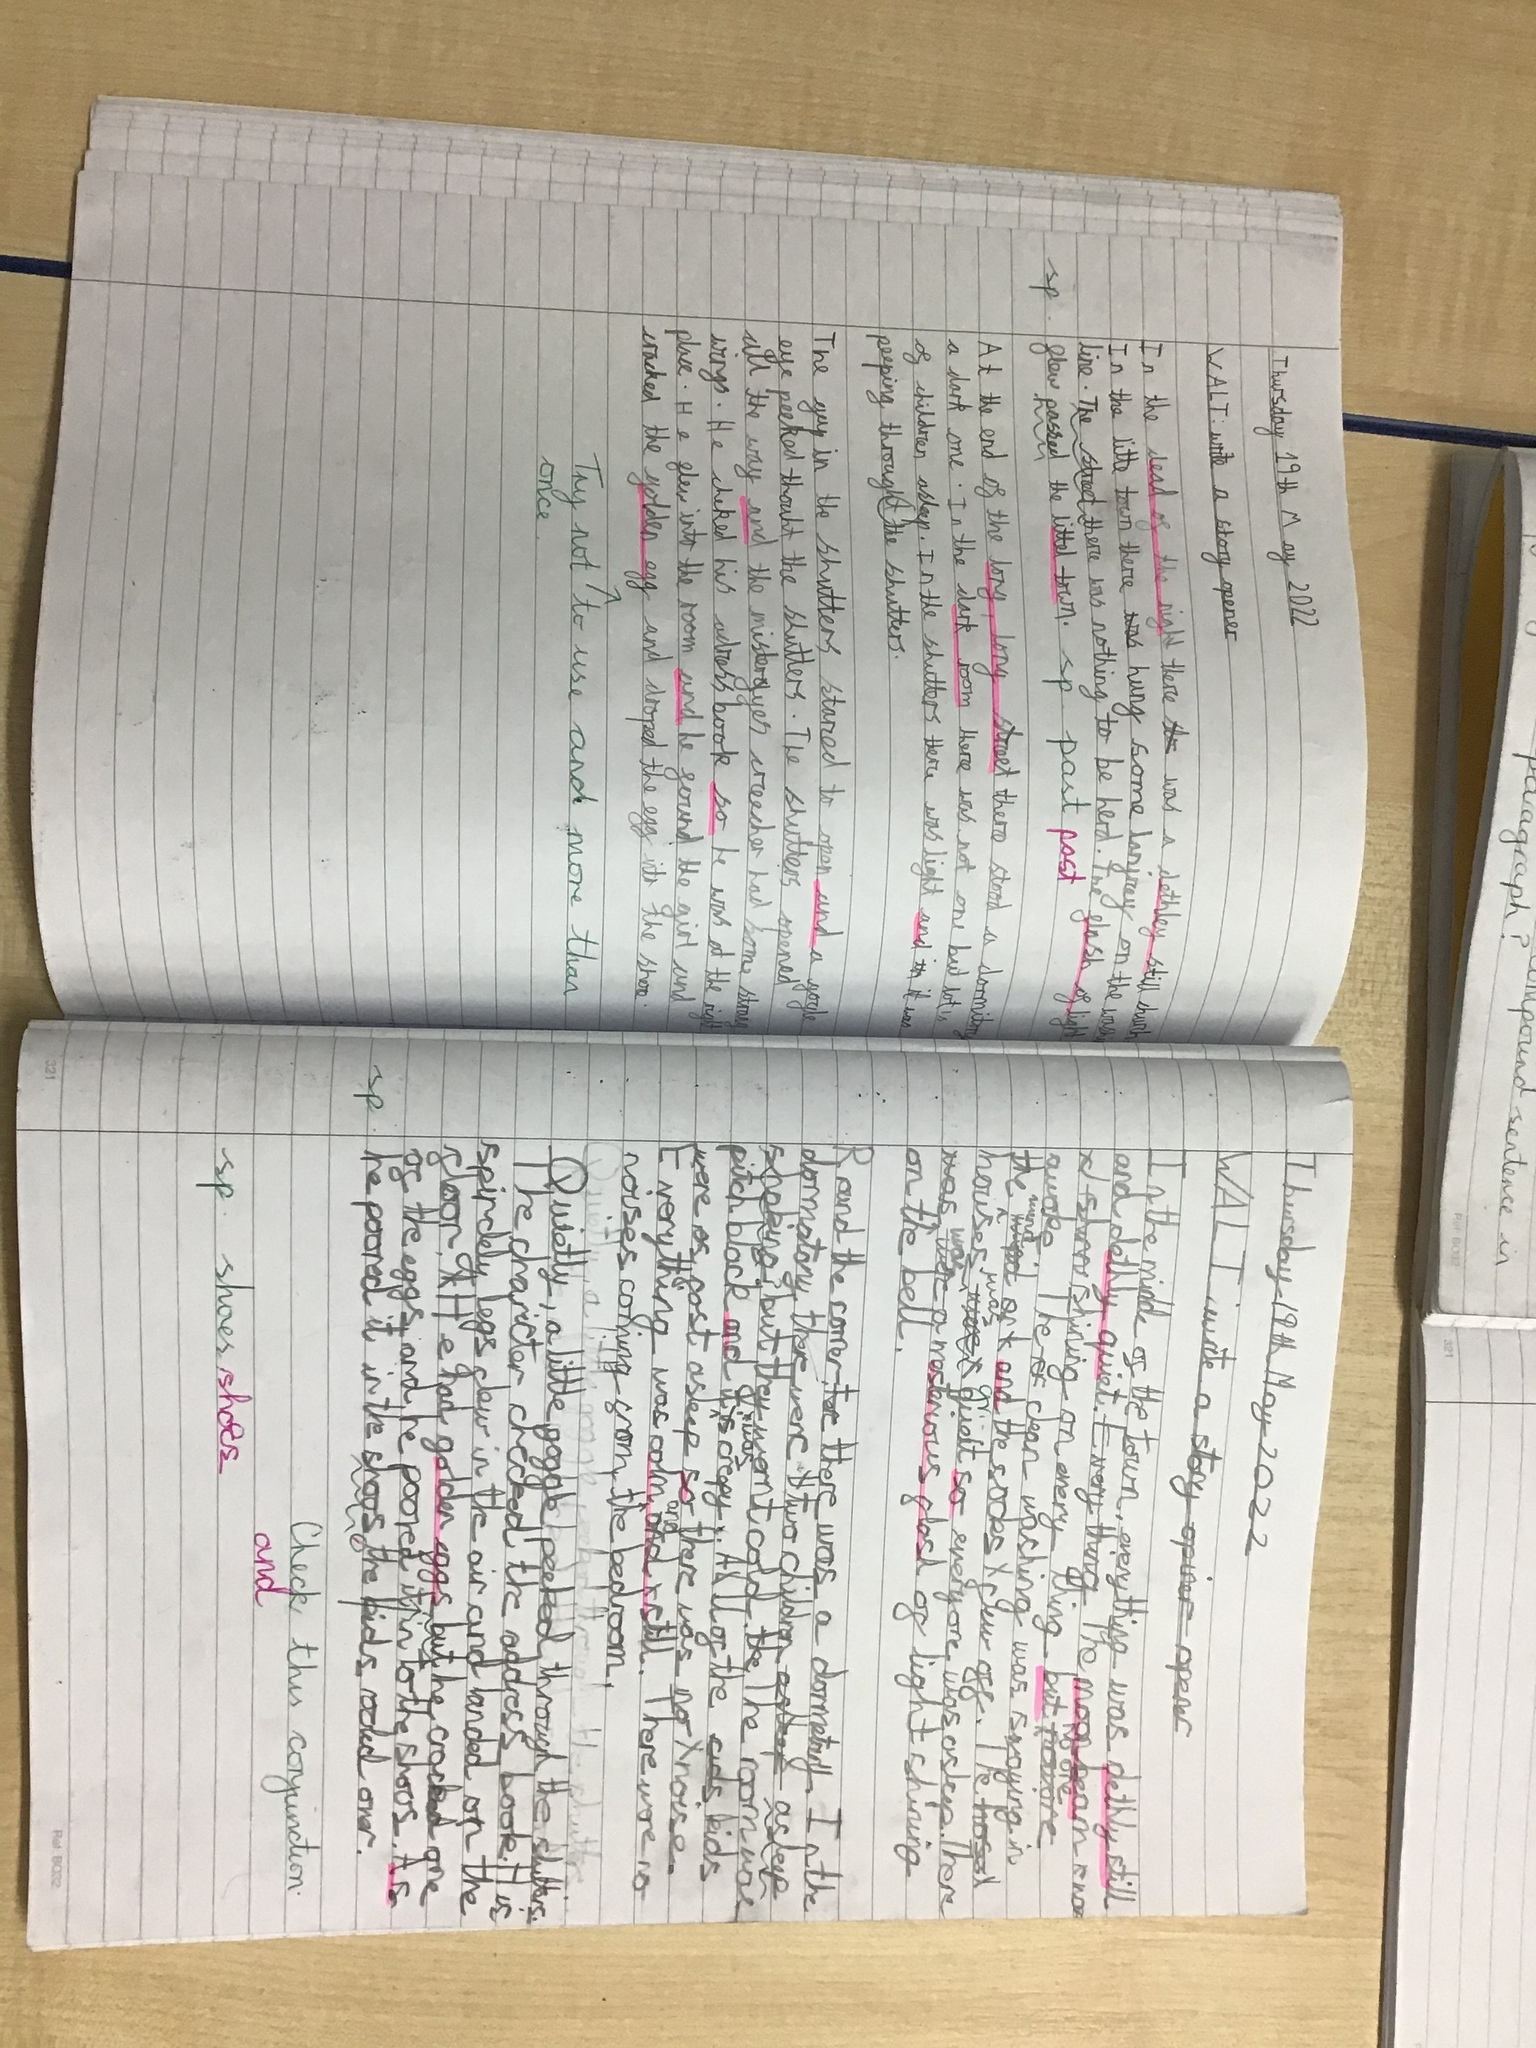 Thursday 19th May 2022
WALT: write a story opener
In the dead of the night there was a dethley still
In the litto town there was hung some on the
line. The street there was nothing to be herd. The glash of light
sp. glew passed the litted town. sp past past
At the end of the long, long street there stood a dormitory
a dark one. In the dark room there was not one but lot's
of children asleep. In the shutters there was light and in it was
peeping throught the shutters.
The guy in the shutters stared to open and a
eye peeked thought the shutters. The shutters opened
all the way and the creecher had some
wings. He cheked his adress book so he was at the right
place. He glew into the room and he gound the girl and
cracked the golden egg and droped the egg into the shoe.
Try not to use and more than
once.
Thursday 19th May 2022
WALT write a story opiner opener
In the midle of the town, everything was dethly still
and dethly quiet. Every thing. The moon beam
shinning on every thing but no one
awoke. The clean washing was swaying in
the wind and the socks glew ogg. The
houses was quiet so every one was asleep. There
was a mesterious glash og light shining
on the bell.
Rond the corner, there was a dormetary. In the
dormatory there were two children asleep
shaking but they weren't cold. The room was
pitch black and it was creepy. All og the kids
were gast asleep so there was no noise.
Everything was calm, and still. There were no
noises coming grom the bedroom.
Quietly, a little goggle peeked through the shutters.
The charicter checked the address book. It is
spinclely legs clew in the air and landed on the
gloor. He had golden eggs but he cracked one
og the eggs and he poored it in to the shoos. As
sp. he poored it in the shoos the kids roled over.
Check this conjunction.
and
sp. shoes shoes
321
Ref BC02
paragraph? compound sentence in
321